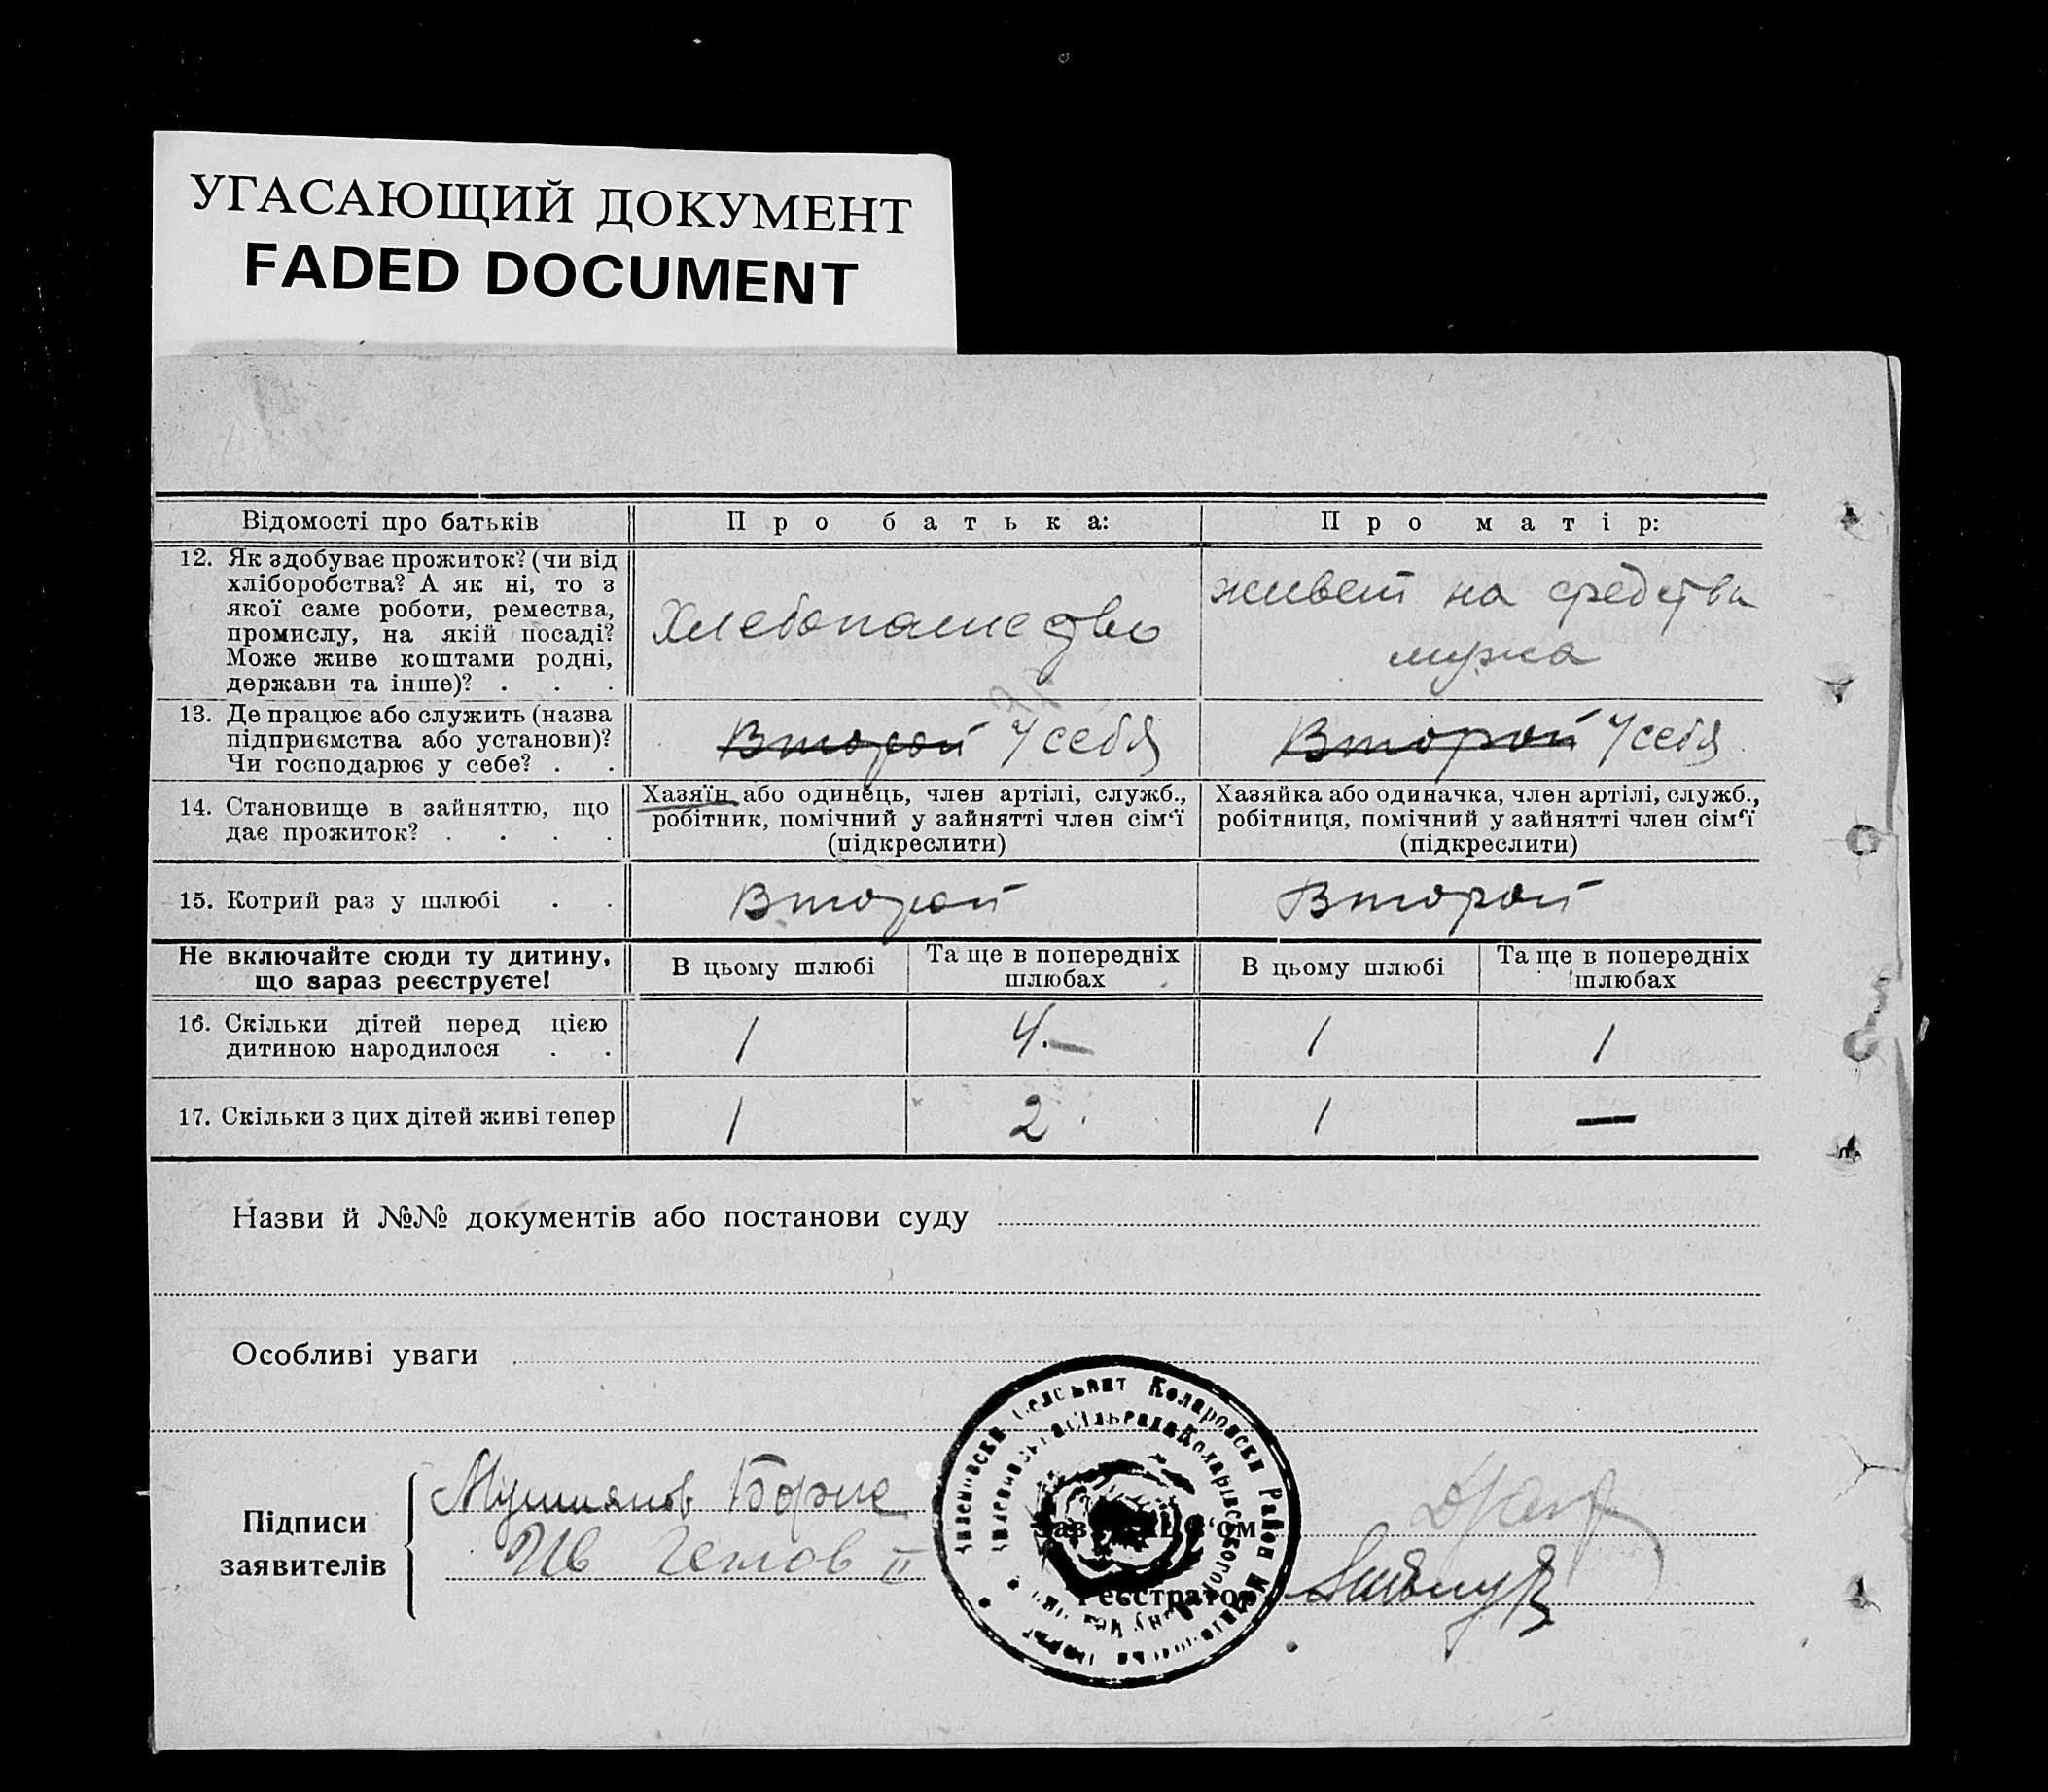 УГАСАЮЩИЙ ДОКУМЕНТ
FADED DOCUMENT
Відомості про батьків
Про батька:
Про матір:
12. Як здобуває прожиток? (чи від
хліборобства? А як ні, то з
якої саме роботи, ремества,
промислу, на якій посаді?
Може живе коштами родні,
держави та інше)? . . .
Хлебопашество
живет на средства
мужа
13. Де працює або служить (назва
підприємства або установи)?
Чи господарює у себе? . .
Второй У себя
Второй У себя
14. Становище в зайняттю, що
дає прожиток? . . . .
Хазяїн або одинець, член артілі, служб.,
робітник, помічний у зайнятті член сім'ї
(підкреслити)
Хазяйка або одиначка, член артілі, служб.,
робітниця, помічний у зайнятті член сім'ї
(підкреслити)
15. Котрий раз у шлюбі . .
Второй
Второй
Не включайте сюди ту дитину,
що зараз реєструєте!
В цьому шлюбі
Та ще в попередніх
шлюбах
В цьому шлюбі
Та ще в попередніх
шлюбах
16. Скільки дітей перед цією
дитиною народилося . .
1
4.—
1
1
17. Скільки з цих дітей живі тепер
1
2
1
—
Назви й №№ документів або постанови суду
Особливі уваги
Підписи
заявителів
Мушиянов Борис
Ив Гетов II
Зав. ЗАЦС'ом
Реєстратор
Коларовски Район
сільрада Коларівського